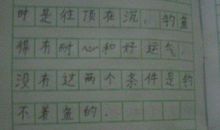 时是往顶在沉，钓鱼
得有耐心和好运气，
没有这两个条件是钓
不着鱼的.